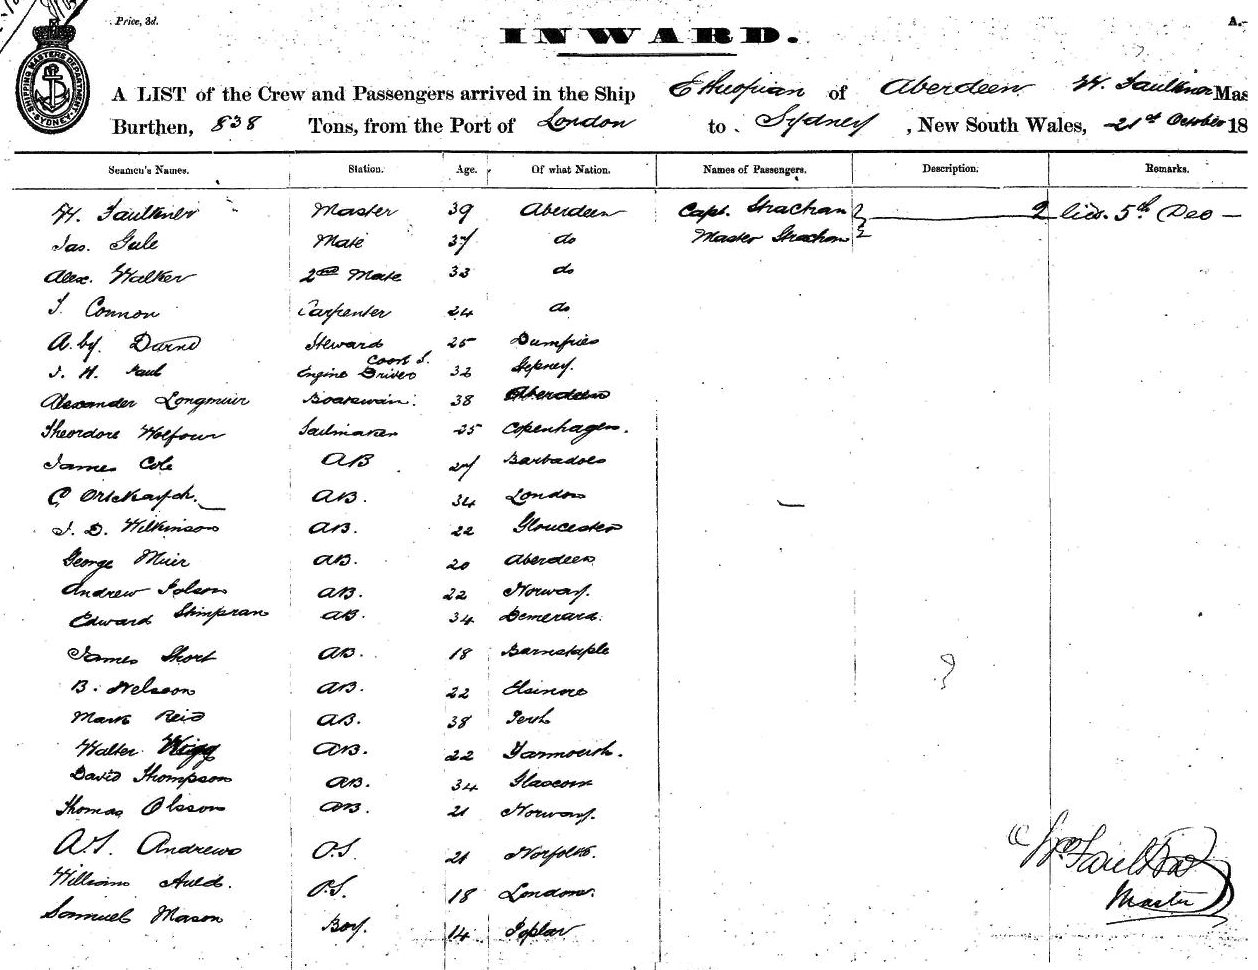 Price, 3d.
A.-
INWARD.
SHIPPING MASTERS DEPARTMENT SYDNEY
A LIST of the Crew and Passengers arrived in the Ship Etheopian of Aberdeen W. Faulkner Mas
Burthen, 838 Tons, from the Port of London to Sydney, New South Wales, 21st October 18
Seamen's Names. Station. Age. Of what Nation. Names of Passengers. Description. Remarks.
W. Faulkner Master 39 Aberdeen Capt. Strachan 2 5th Dec
Jas. Gale Mate 37 do Master Strachan
Alex. Walker 2nd Mate 33 do
J. Connon Carpenter 24 do
A. Steward 25 Dumfries
J. H. Paul Cook & Engine Driver 32 Stepney.
Alexander Longmuir Boatswain. 38 Aberdeen
Theordore Wolfour Sailmaker 25 Copenhagen.
James Cole AB 27 Barbadoes
C AB. 34 London
J. D. Wilkinson AB. 22 Gloucester
George Muir AB. 20 Aberdeen
Andrew AB. 22 Norway.
Edward AB. 34 Demerara.
James Short AB. 18 Barnstaple
B. Nelsson AB. 22 Elsinore
Mark Reid AB. 38 Perth
Walter Wigg AB. 22 Yarmouth.
David Thompson AB. 34 Glascow
Thomas Olsson AB. 21 Norway.
A.S. Andrews O.S. 21 Norfolk.
William Auld. O.S. 18 London.
Samuel Mason Boy. 14 Poplar
Wm Faulkner
Master